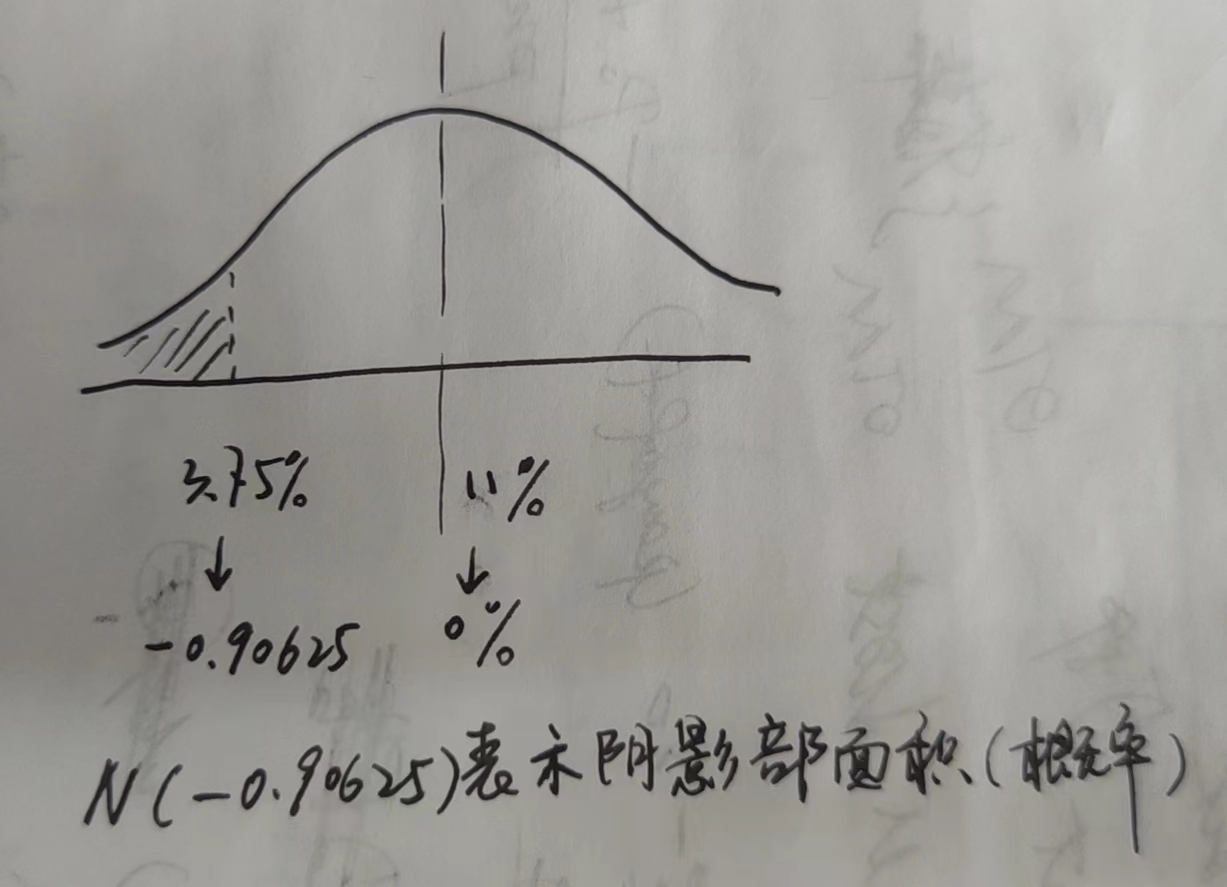 3.75% 11%
↓ ↓
-0.90625 0%
N(-0.90625)表示阴影部面积(概率)